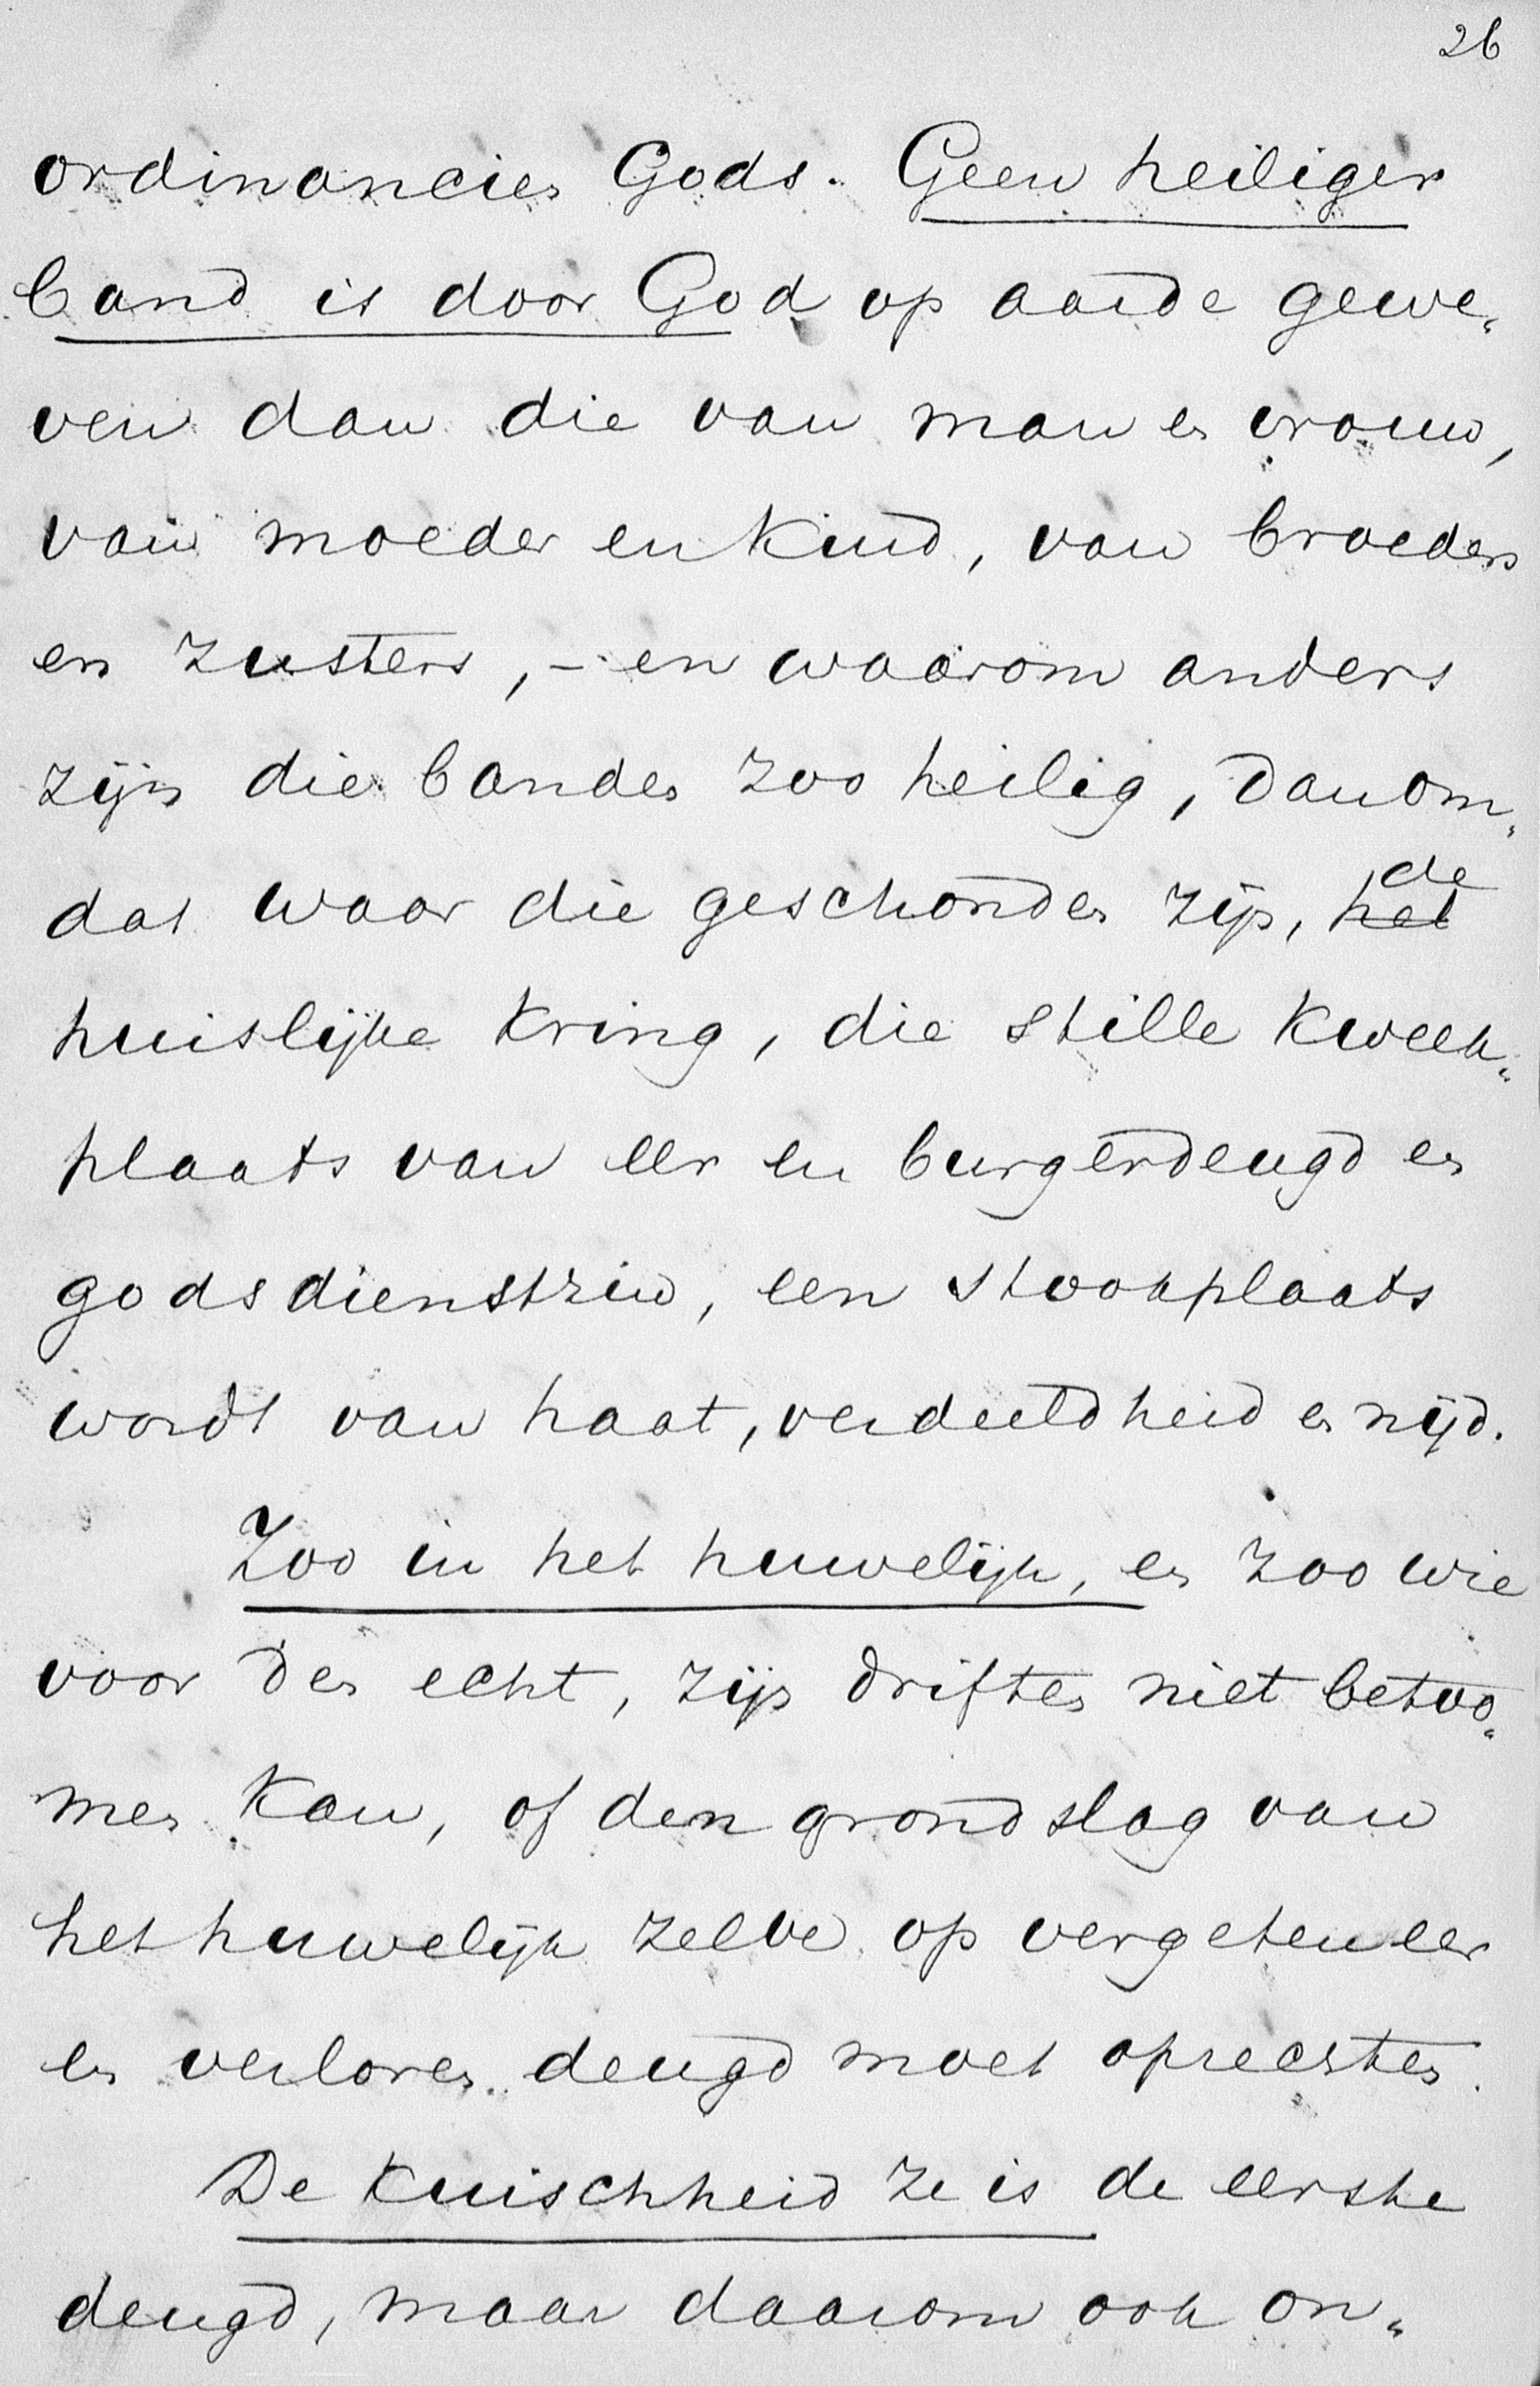 26
ordinancien Gods. Geen heiliger
band is door God op aarde gewe„
ven dan die van man en vrouw,
van moeder en kind, van broeders
en zusters, – en waarom anders
zijn die banden zoo heilig, dan om„
dat waar die geschonden zijn, het de
huislijke kring, die stille kweek„
plaats van eer en burgerdeugd en
godsdienstzin, een stookplaats
wordt van haat, verdeeldheid en nijd.
Zoo in het huwelijk, en zoo wie
voor den echt, zijn driften niet betoo„
men kan, of den grondslag van
het huwelijk zelve op vergeten eer
en verloren deugd moet oprechten.
De kuischheid ze is de eerste
deugd, maar daarom ook on„